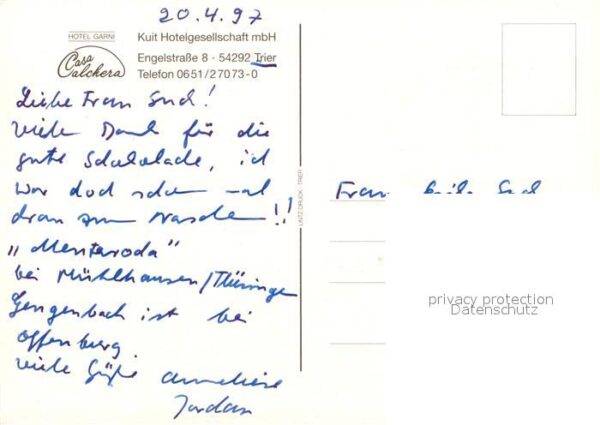 20.4.97
HOTEL GARNI
Casa Calchera
Kuit Hotelgesellschaft mbH
Engelstraße 8 · 54292 Trier
Telefon 0651/27073-0
Liebe Frau !
Vielen Dank für die
gute Schokolade, ich
war doch schon mal
dran zum Naschen!!
„Menteroda"
bei Mühlhausen/Thüringen
Gengenbach ist bei
Offenburg
viele Grüße Anneliese
Jordan
LINTZ DRUCK · TRIER
Frau
privacy protection
Datenschutz